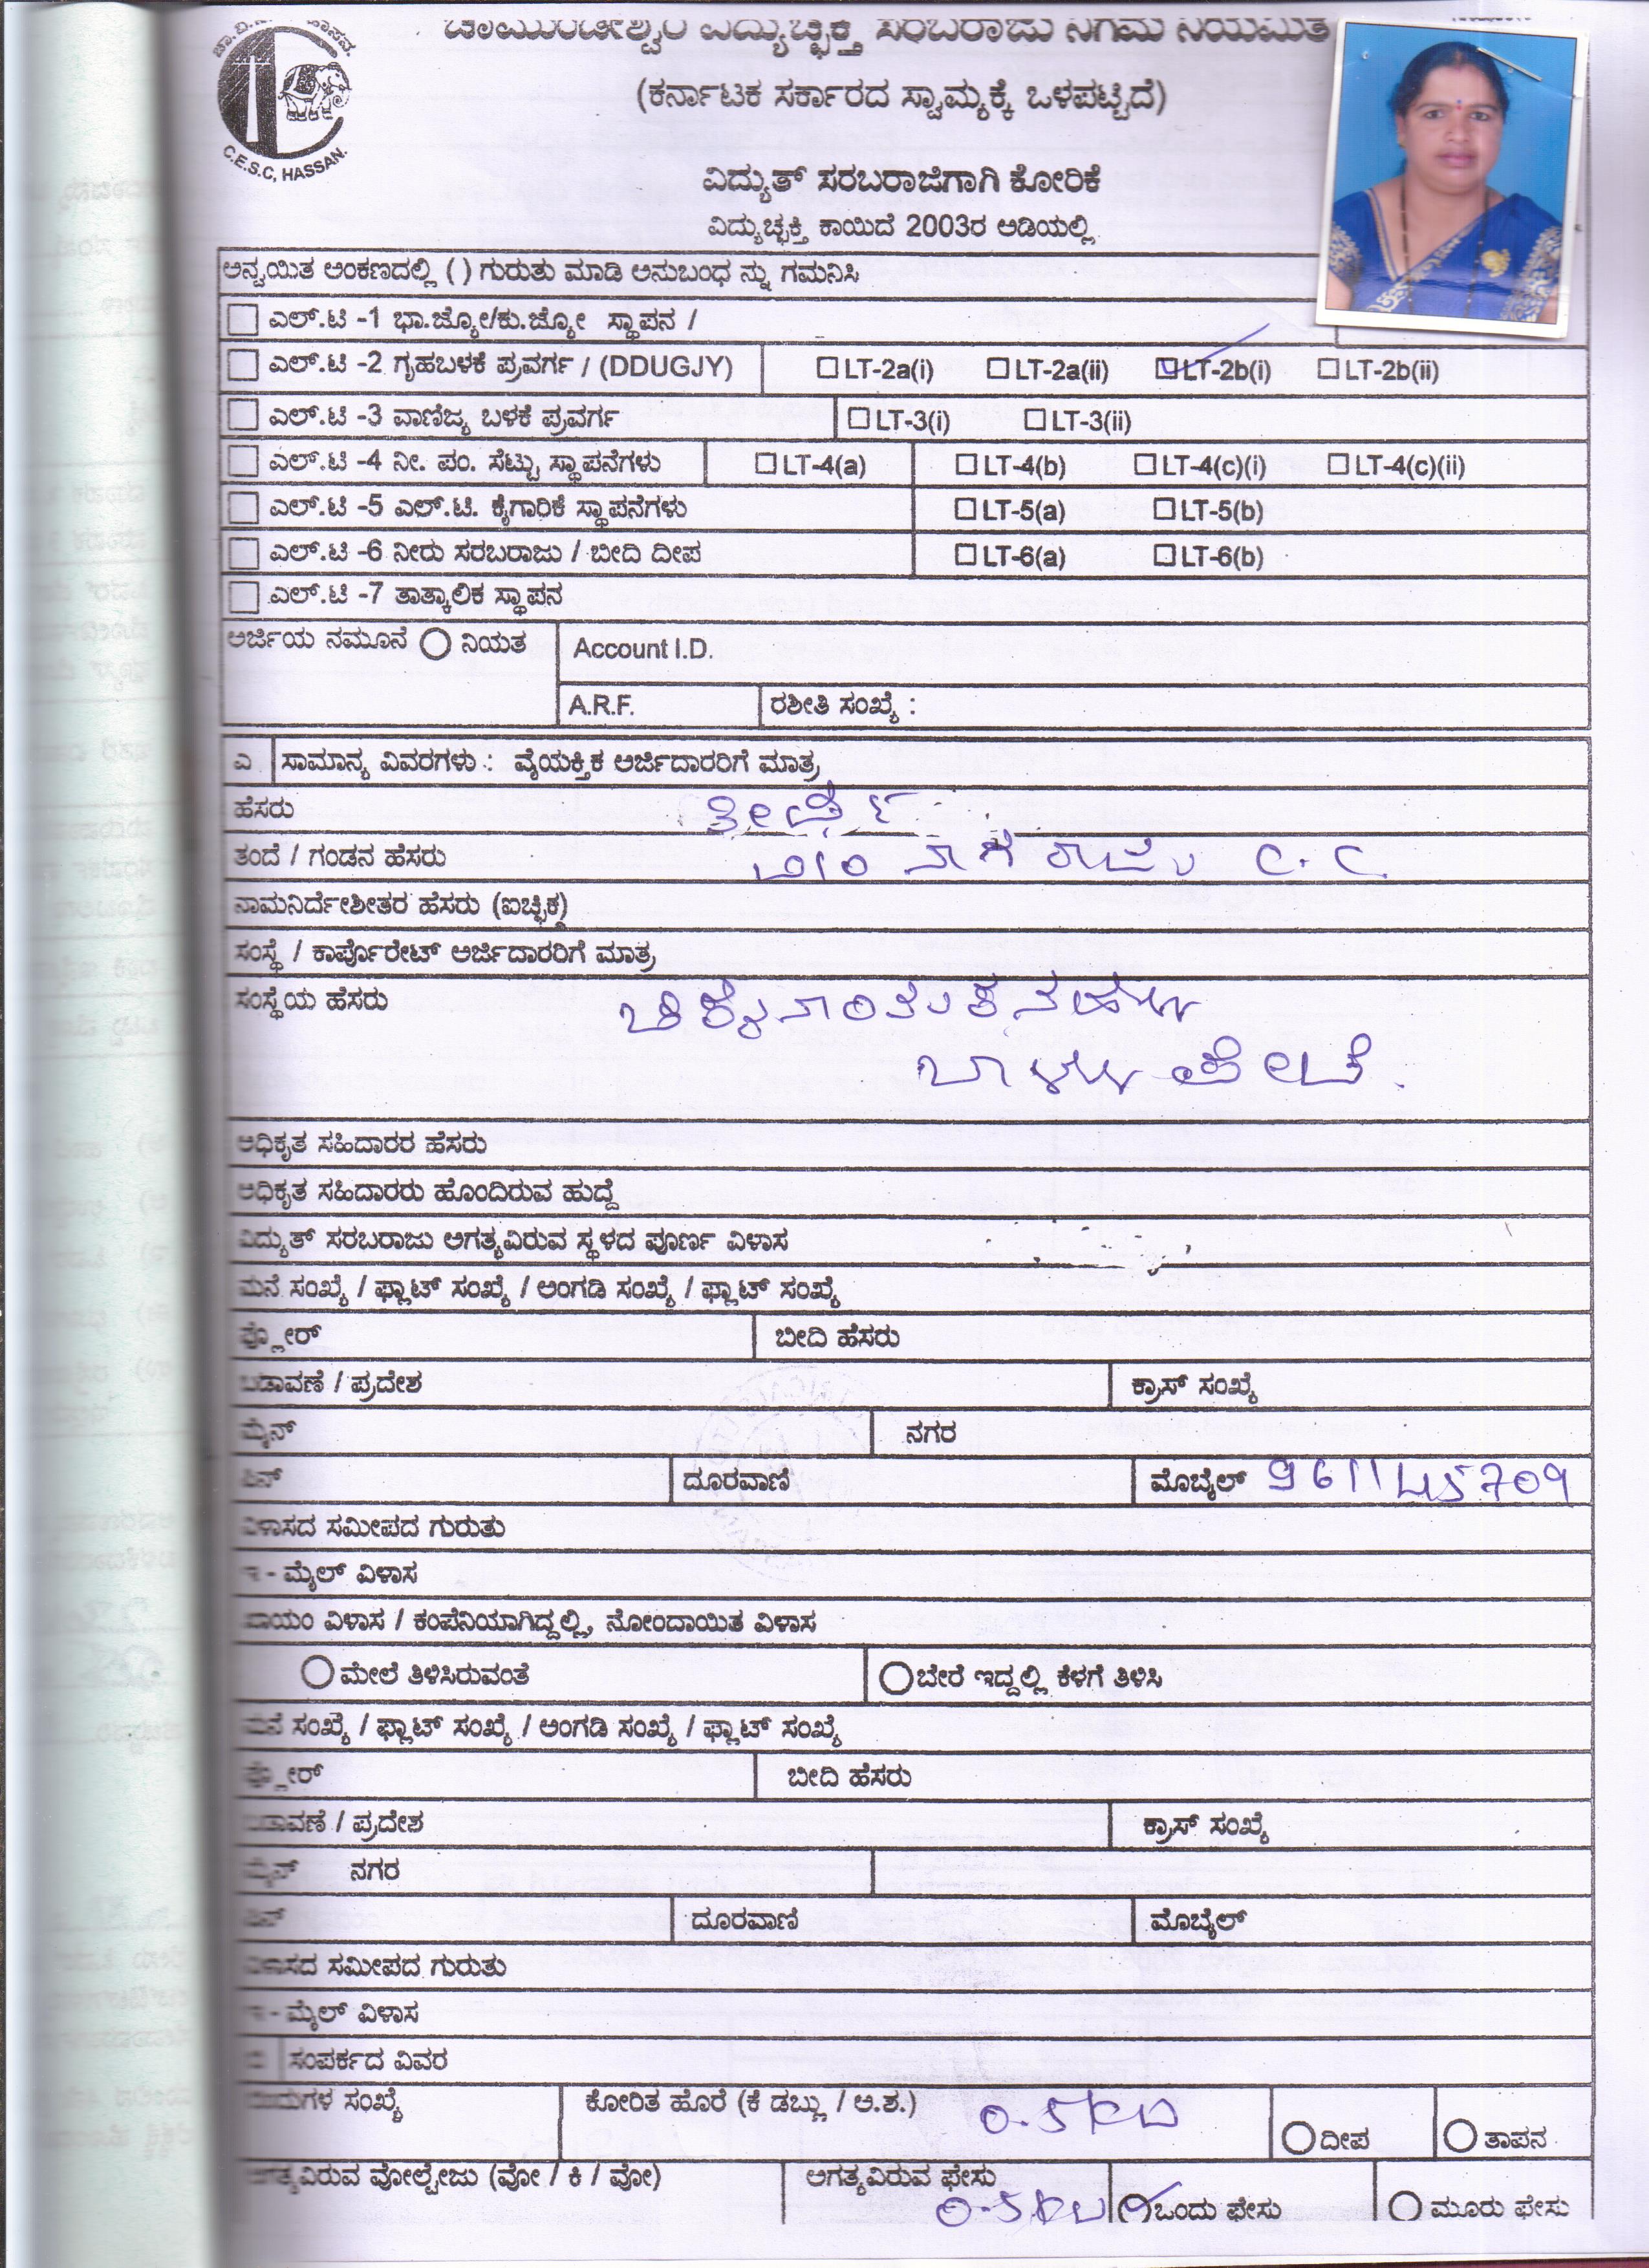 ಚಾಮುಂಡೇಶ್ವರಿ ವಿದ್ಯುಚ್ಛಕ್ತಿ ಸರಬರಾಜು ನಿಗಮ ನಿಯಮಿತ
(ಕರ್ನಾಟಕ ಸರ್ಕಾರದ ಸ್ವಾಮ್ಯಕ್ಕೆ ಒಳಪಟ್ಟಿದೆ)
C.E.S.C, HASSAN.
ವಿದ್ಯುತ್ ಸರಬರಾಜಿಗಾಗಿ ಕೋರಿಕೆ
ವಿದ್ಯುಚ್ಛಕ್ತಿ ಕಾಯಿದೆ 2003ರ ಅಡಿಯಲ್ಲಿ
ಅನ್ವಯಿತ ಅಂಕಣದಲ್ಲಿ ( ) ಗುರುತು ಮಾಡಿ ಅನುಬಂಧ ನ್ನು ಗಮನಿಸಿ
ಎಲ್.ಟಿ -1 ಭಾ.ಜ್ಯೋ/ಕು.ಜ್ಯೋ ಸ್ಥಾಪನ /
ಎಲ್.ಟಿ -2 ಗೃಹಬಳಕೆ ಪ್ರವರ್ಗ / (DDUGJY) LT-2a(i) LT-2a(ii) LT-2b(i) LT-2b(ii)
ಎಲ್.ಟಿ -3 ವಾಣಿಜ್ಯ ಬಳಕೆ ಪ್ರವರ್ಗ LT-3(i) LT-3(ii)
ಎಲ್.ಟಿ -4 ನೀ. ಪಂ. ಸೆಟ್ಟು ಸ್ಥಾಪನೆಗಳು LT-4(a) LT-4(b) LT-4(c)(i) LT-4(c)(ii)
ಎಲ್.ಟಿ -5 ಎಲ್.ಟಿ. ಕೈಗಾರಿಕೆ ಸ್ಥಾಪನೆಗಳು LT-5(a) LT-5(b)
ಎಲ್.ಟಿ -6 ನೀರು ಸರಬರಾಜು / ಬೀದಿ ದೀಪ LT-6(a) LT-6(b)
ಎಲ್.ಟಿ -7 ತಾತ್ಕಾಲಿಕ ಸ್ಥಾಪನ
ಅರ್ಜಿಯ ನಮೂನೆ ನಿಯತ Account I.D.
A.R.F. ರಶೀತಿ ಸಂಖ್ಯೆ :
ಎ ಸಾಮಾನ್ಯ ವಿವರಗಳು : ವೈಯಕ್ತಿಕ ಅರ್ಜಿದಾರರಿಗೆ ಮಾತ್ರ
ಹೆಸರು ತೀರ್ಥ
ತಂದೆ / ಗಂಡನ ಹೆಸರು ನಾಗರಾಜು C. C.
ನಾಮನಿರ್ದೇಶೀತರ ಹೆಸರು (ಐಚ್ಛಿಕ)
ಸಂಸ್ಥೆ / ಕಾರ್ಪೊರೇಟ್ ಅರ್ಜಿದಾರರಿಗೆ ಮಾತ್ರ
ಸಂಸ್ಥೆಯ ಹೆಸರು
ಬಾಳ್ಳುಪೇಟೆ.
ಅಧಿಕೃತ ಸಹಿದಾರರ ಹೆಸರು
ಅಧಿಕೃತ ಸಹಿದಾರರು ಹೊಂದಿರುವ ಹುದ್ದೆ
ವಿದ್ಯುತ್ ಸರಬರಾಜು ಅಗತ್ಯವಿರುವ ಸ್ಥಳದ ಪೂರ್ಣ ವಿಳಾಸ
ಮನೆ ಸಂಖ್ಯೆ / ಫ್ಲಾಟ್ ಸಂಖ್ಯೆ / ಅಂಗಡಿ ಸಂಖ್ಯೆ / ಫ್ಲಾಟ್ ಸಂಖ್ಯೆ
ಫ್ಲೋರ್ ಬೀದಿ ಹೆಸರು
ಬಡಾವಣೆ / ಪ್ರದೇಶ ಕ್ರಾಸ್ ಸಂಖ್ಯೆ
ಮೈನ್ ನಗರ
ಪಿನ್ ದೂರವಾಣಿ ಮೊಬೈಲ್ 9611445709
ವಿಳಾಸದ ಸಮೀಪದ ಗುರುತು
ಇ - ಮೈಲ್ ವಿಳಾಸ
ಖಾಯಂ ವಿಳಾಸ / ಕಂಪೆನಿಯಾಗಿದ್ದಲ್ಲಿ, ನೋಂದಾಯಿತ ವಿಳಾಸ
ಮೇಲೆ ತಿಳಿಸಿರುವಂತೆ ಬೇರೆ ಇದ್ದಲ್ಲಿ ಕೆಳಗೆ ತಿಳಿಸಿ
ಮನೆ ಸಂಖ್ಯೆ / ಫ್ಲಾಟ್ ಸಂಖ್ಯೆ / ಅಂಗಡಿ ಸಂಖ್ಯೆ / ಫ್ಲಾಟ್ ಸಂಖ್ಯೆ
ಫ್ಲೋರ್ ಬೀದಿ ಹೆಸರು
ಬಡಾವಣೆ / ಪ್ರದೇಶ ಕ್ರಾಸ್ ಸಂಖ್ಯೆ
ಮೈನ್ ನಗರ
ಪಿನ್ ದೂರವಾಣಿ ಮೊಬೈಲ್
ವಿಳಾಸದ ಸಮೀಪದ ಗುರುತು
ಇ - ಮೈಲ್ ವಿಳಾಸ
ಸಂಪರ್ಕದ ವಿವರ
ಸಂಖ್ಯೆ ಕೋರಿತ ಹೊರೆ (ಕೆ ಡಬ್ಲ್ಯು / ಅ.ಶ.) 0.5KW ದೀಪ ತಾಪನ
ಅಗತ್ಯವಿರುವ ವೋಲ್ಟೇಜು (ವೋ / ಕಿ / ವೋ) ಅಗತ್ಯವಿರುವ ಫೇಸು 0.5KW ಒಂದು ಫೇಸು ಮೂರು ಫೇಸು